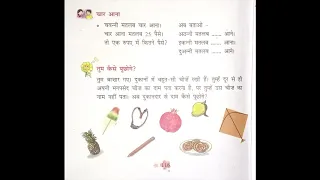 चार आना
• चवन्नी मतलब चार आना।
चार आना मतलब 25 पैसे।
तो एक रुपए में कितने पैसे?
अब बताओ -
अठन्नी मतलब ____ आने।
इकन्नी मतलब ____ आना।
दुअन्नी मतलब ____ आने।
तुम कैसे पूछोगे?
तुम बाज़ार गए। दुकानों में बहुत-सी चीज़ें रखी हैं। तुम्हें दूर से ही
अपनी मनपसंद चीज़ का नाम पता करना है, पर तुम्हें उस चीज़ का
नाम नहीं पता। अब दुकानदार से नाम कैसे पूछोगे?